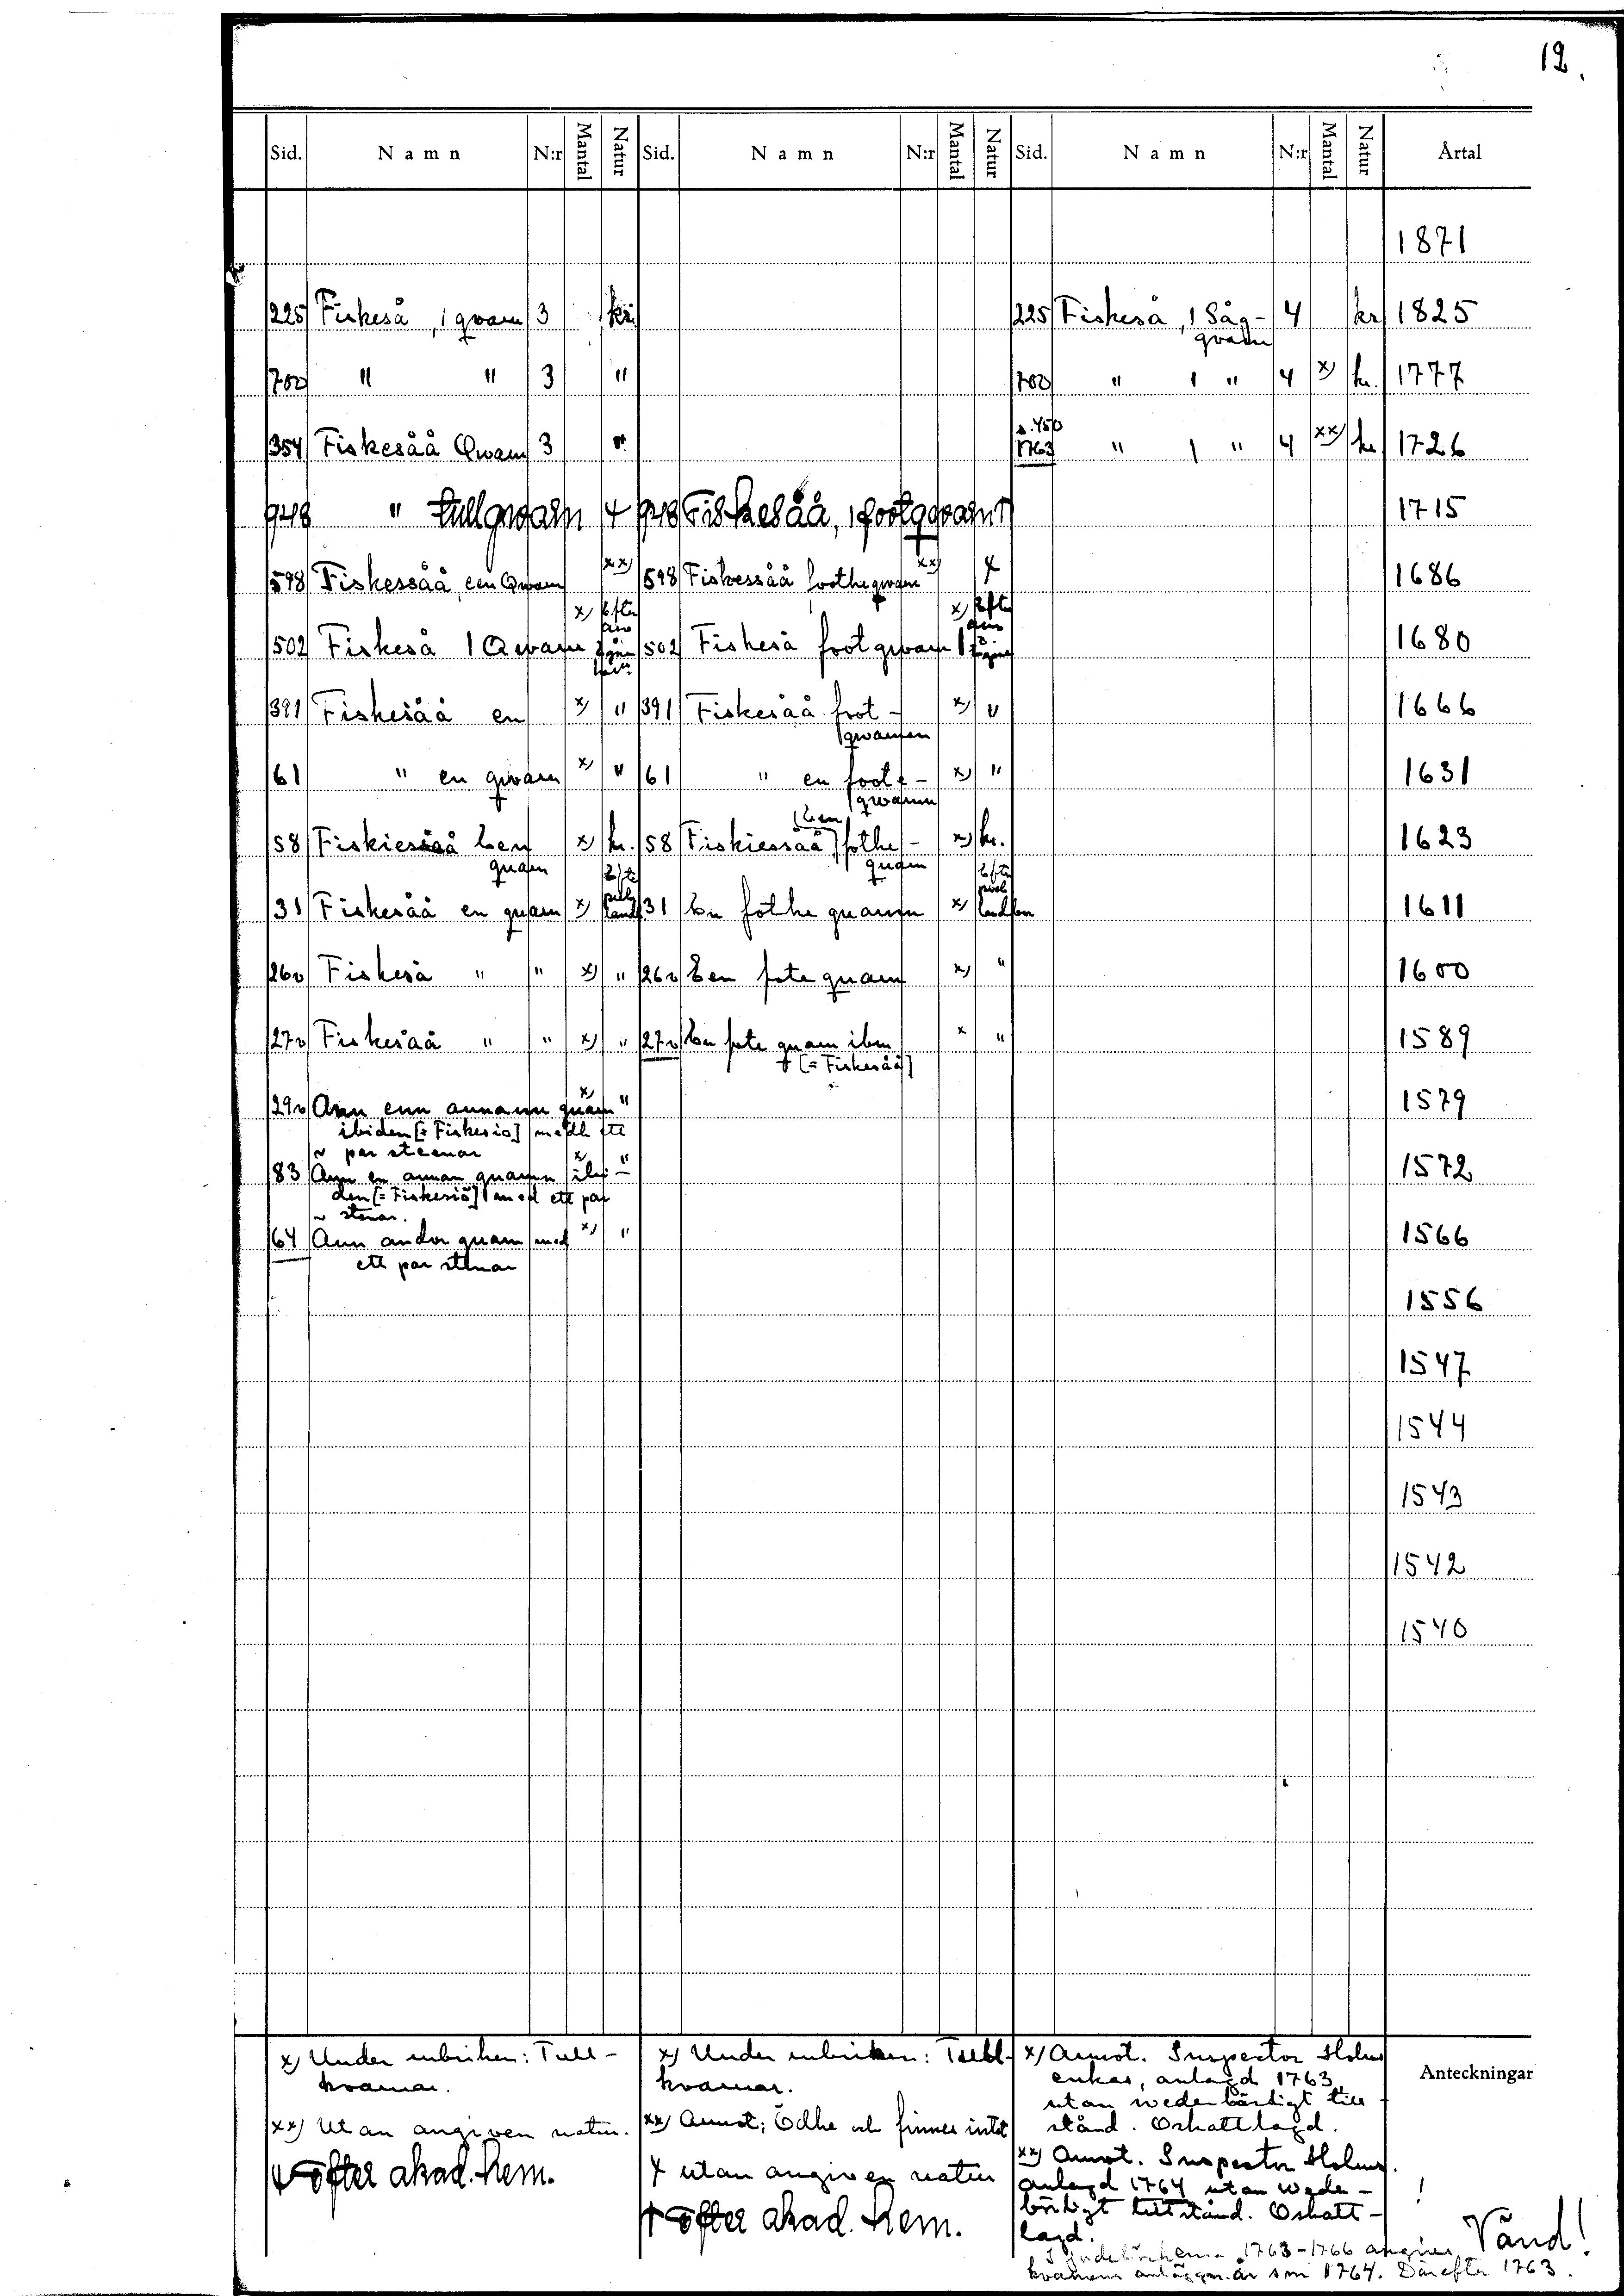 12.
Sid. Namn N:r Mantal Natur Sid. Namn N:r Mantal Natur Sid. Namn N:r Mantal Natur Årtal
1871
225 Fiskeså, 1 qvarn 3 kr. 225 Fiskeså, 1 Såg- 4 kr 1825
qvarn
700 " " 3 " 700 " 1 " 4 x) kr. 1777
s. 450
354 Fiskesåå Qwarn 3 " 1763 " 1 " 4 xx) kr. 1726
948 " tullqwarn 948 Fiskesåå, 1 footqwarn 1715
598 Fiskessåå, een Qwarn xx) 598 Fiskessåå foothe qwarn xx) 1686
502 Fiskeså 1 Qwarn x) 502 Fiskeså foot qwarn 1 x) 1680
391 Fiskesåå en x) " 391 Fiskesåå foot- x) " 1666
qwarnen
61 " en qwarn x) " 61 " en foote- x) " 1631
qwarnn
58 Fiskiesåå Een x) kr. 58 Fiskiessåå [Een] fothe- x) kr. 1623
quarn quarn
31 Fiskesåå en quarn x) 31 En fothe quarnn x) 1611
26v Fiskeså " " x) " 26v Een fote quarn x) " 1600
27v Fiskesåå " " x) " 27v En fote quarn ibm x " 1589
[= Fiskesåå]
29v Ann enn annann quarn x) " 1579
ibiden [= Fiskesio] medh ett
par steenar
83 Ann en annan quarnn ibi- x " 1572
den [= Fiskesiö] med ett par
stenar.
64 Ann andor quarn med x) " 1566
ett par stenar
1556
1547
1544
1543
1542
1540
Anteckningar
x) Under rubriken: Tull-
kvarnar.
xx) Utan angiven natur.
Öfter akad. hem.
x) Under rubriken: Tull-
kvarnar.
xx) Annot: Ödhe och finnes intet
utan angiven natur
† Öfter akad. hem.
x) Annot. Inspector Holms
enkas, anlagd 1763
utan wederbörligt till
stånd. Oskattlagd.
xx) Annot. Inspector Holms.
anlagd 1764 utan wede-
börligt tillstånd. Oskatt-
lagd.
I jordeböckerna 1763-1766 angives
kvarnens anläggn.år som 1764. Därefter 1763.
!
Vänd!